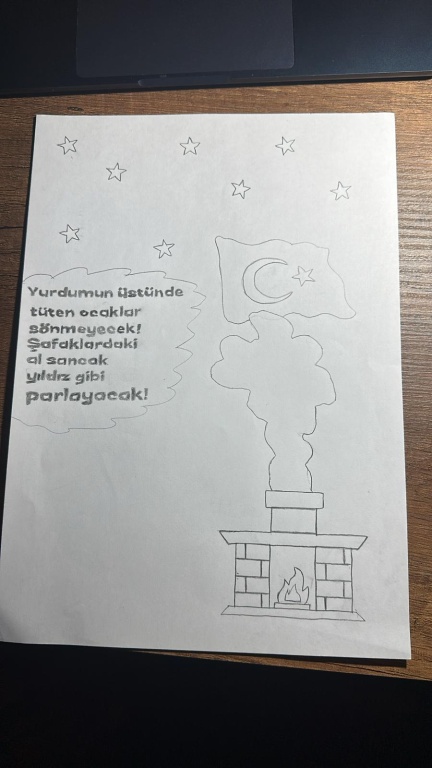 Yurdumun üstünde
tüten ocaklar
sönmeyecek!
Şafaklardaki
al sancak
yıldız gibi
parlayacak!